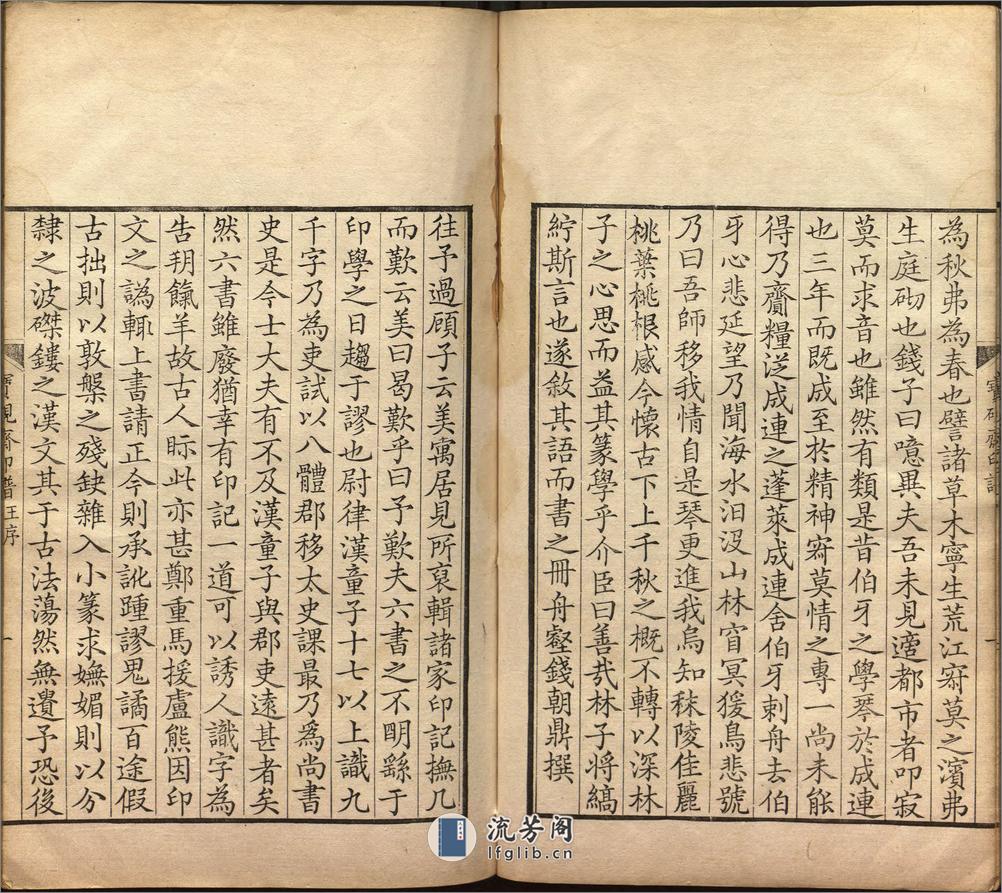 為秋弗為春也譬諸草木寧生荒江寂莫之濱弗
生庭砌也錢子曰噫異夫吾未見適都市者叩寂
莫而求音也雖然有類是昔伯牙之學琴於成連
也三年而既成至於精神寂莫情之專一尚未能
得乃齎糧泛成連之蓬萊成連舍伯牙刺舟去伯
牙心悲延望乃聞海水汩沒山林窅冥猨鳥悲號
乃曰吾師移我情自是琴更進我烏知秣陵佳麗
桃葉桃根感今懷古下上千秋之概不轉以深林
子之心思而益其篆學乎介臣曰善哉林子將縞
紵斯言也遂敘其語而書之冊舟壑錢朝鼎撰
寶硯齋印譜
往予過顧子云美寓居見所裒輯諸家印記撫几
而歎云美曰曷歎乎曰予歎夫六書之不明繇于
印學之日趨于謬也尉律漢童子十七以上識九
千字乃為吏試以八體郡移太史課最乃爲尚書
史是今士大夫有不及漢童子與郡吏遠甚者矣
然六書雖廢猶幸有印記一道可以誘人識字為
告朔餼羊故古人眎此亦甚鄭重馬援盧熊因印
文之譌輒上書請正今則承訛踵謬恖譎百途假
古拙則以敦槃之殘缺雜入小篆求嫵媚則以分
隸之波磔鏤之漢文其于古法蕩然無遺予恐後
寶硯齋印譜王序
一
流芳阁
lfglib.cn